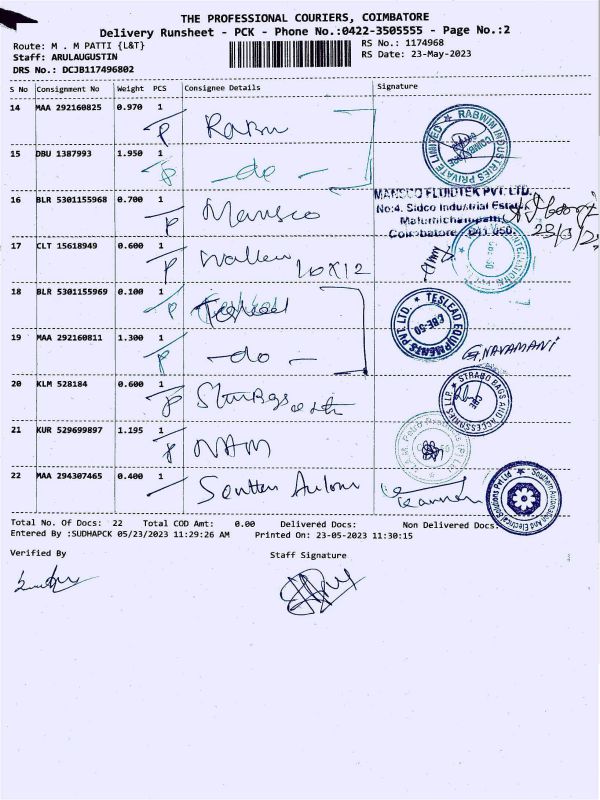 THE PROFESSIONAL COURIERS, COIMBATORE
Delivery Runsheet - PCK - Phone No.:0422-3505555 - Page No.:2
Route: M . M PATTI {L&T}
RS No.: 1174968
Staff: ARULAUGUSTIN
RS Date: 23-May-2023
DRS No.: DCJB117496802
S No Consignment No Weight PCS Consignee Details Signature
14 MAA 292160825 0.970 1
P
RABWIN INDUSTRIES PRIVATE LIMITED
15 DBU 1387993 1.950 1
P - do -
16 BLR 5301155968 0.700 1
P Mansco
MANSCO FLUIDTEK PVT. LTD.
No:4, Sidco Industrial Estate,
Malumichampatti,
Coimbatore - 641 050.
17 CLT 15618949 0.600 1
P
18 BLR 5301155969 0.100 1
P
TESLEAD EQUIPMENTS PVT. LTD.
CBE-50
19 MAA 292160811 1.300 1
P - do -
G. NAVAMANI
20 KLM 528184 0.600 1
P
STRABO BAGS AND ACCESSORIES LLP
21 KUR 529699897 1.195 1
P NAM
22 MAA 294307465 0.400 1
Southern Automation And Electrical Solutions Pvt Ltd
Total No. Of Docs: 22 Total COD Amt: 0.00 Delivered Docs: Non Delivered Docs:
Entered By :SUDHAPCK 05/23/2023 11:29:26 AM Printed On: 23-05-2023 11:30:15
Verified By Staff Signature